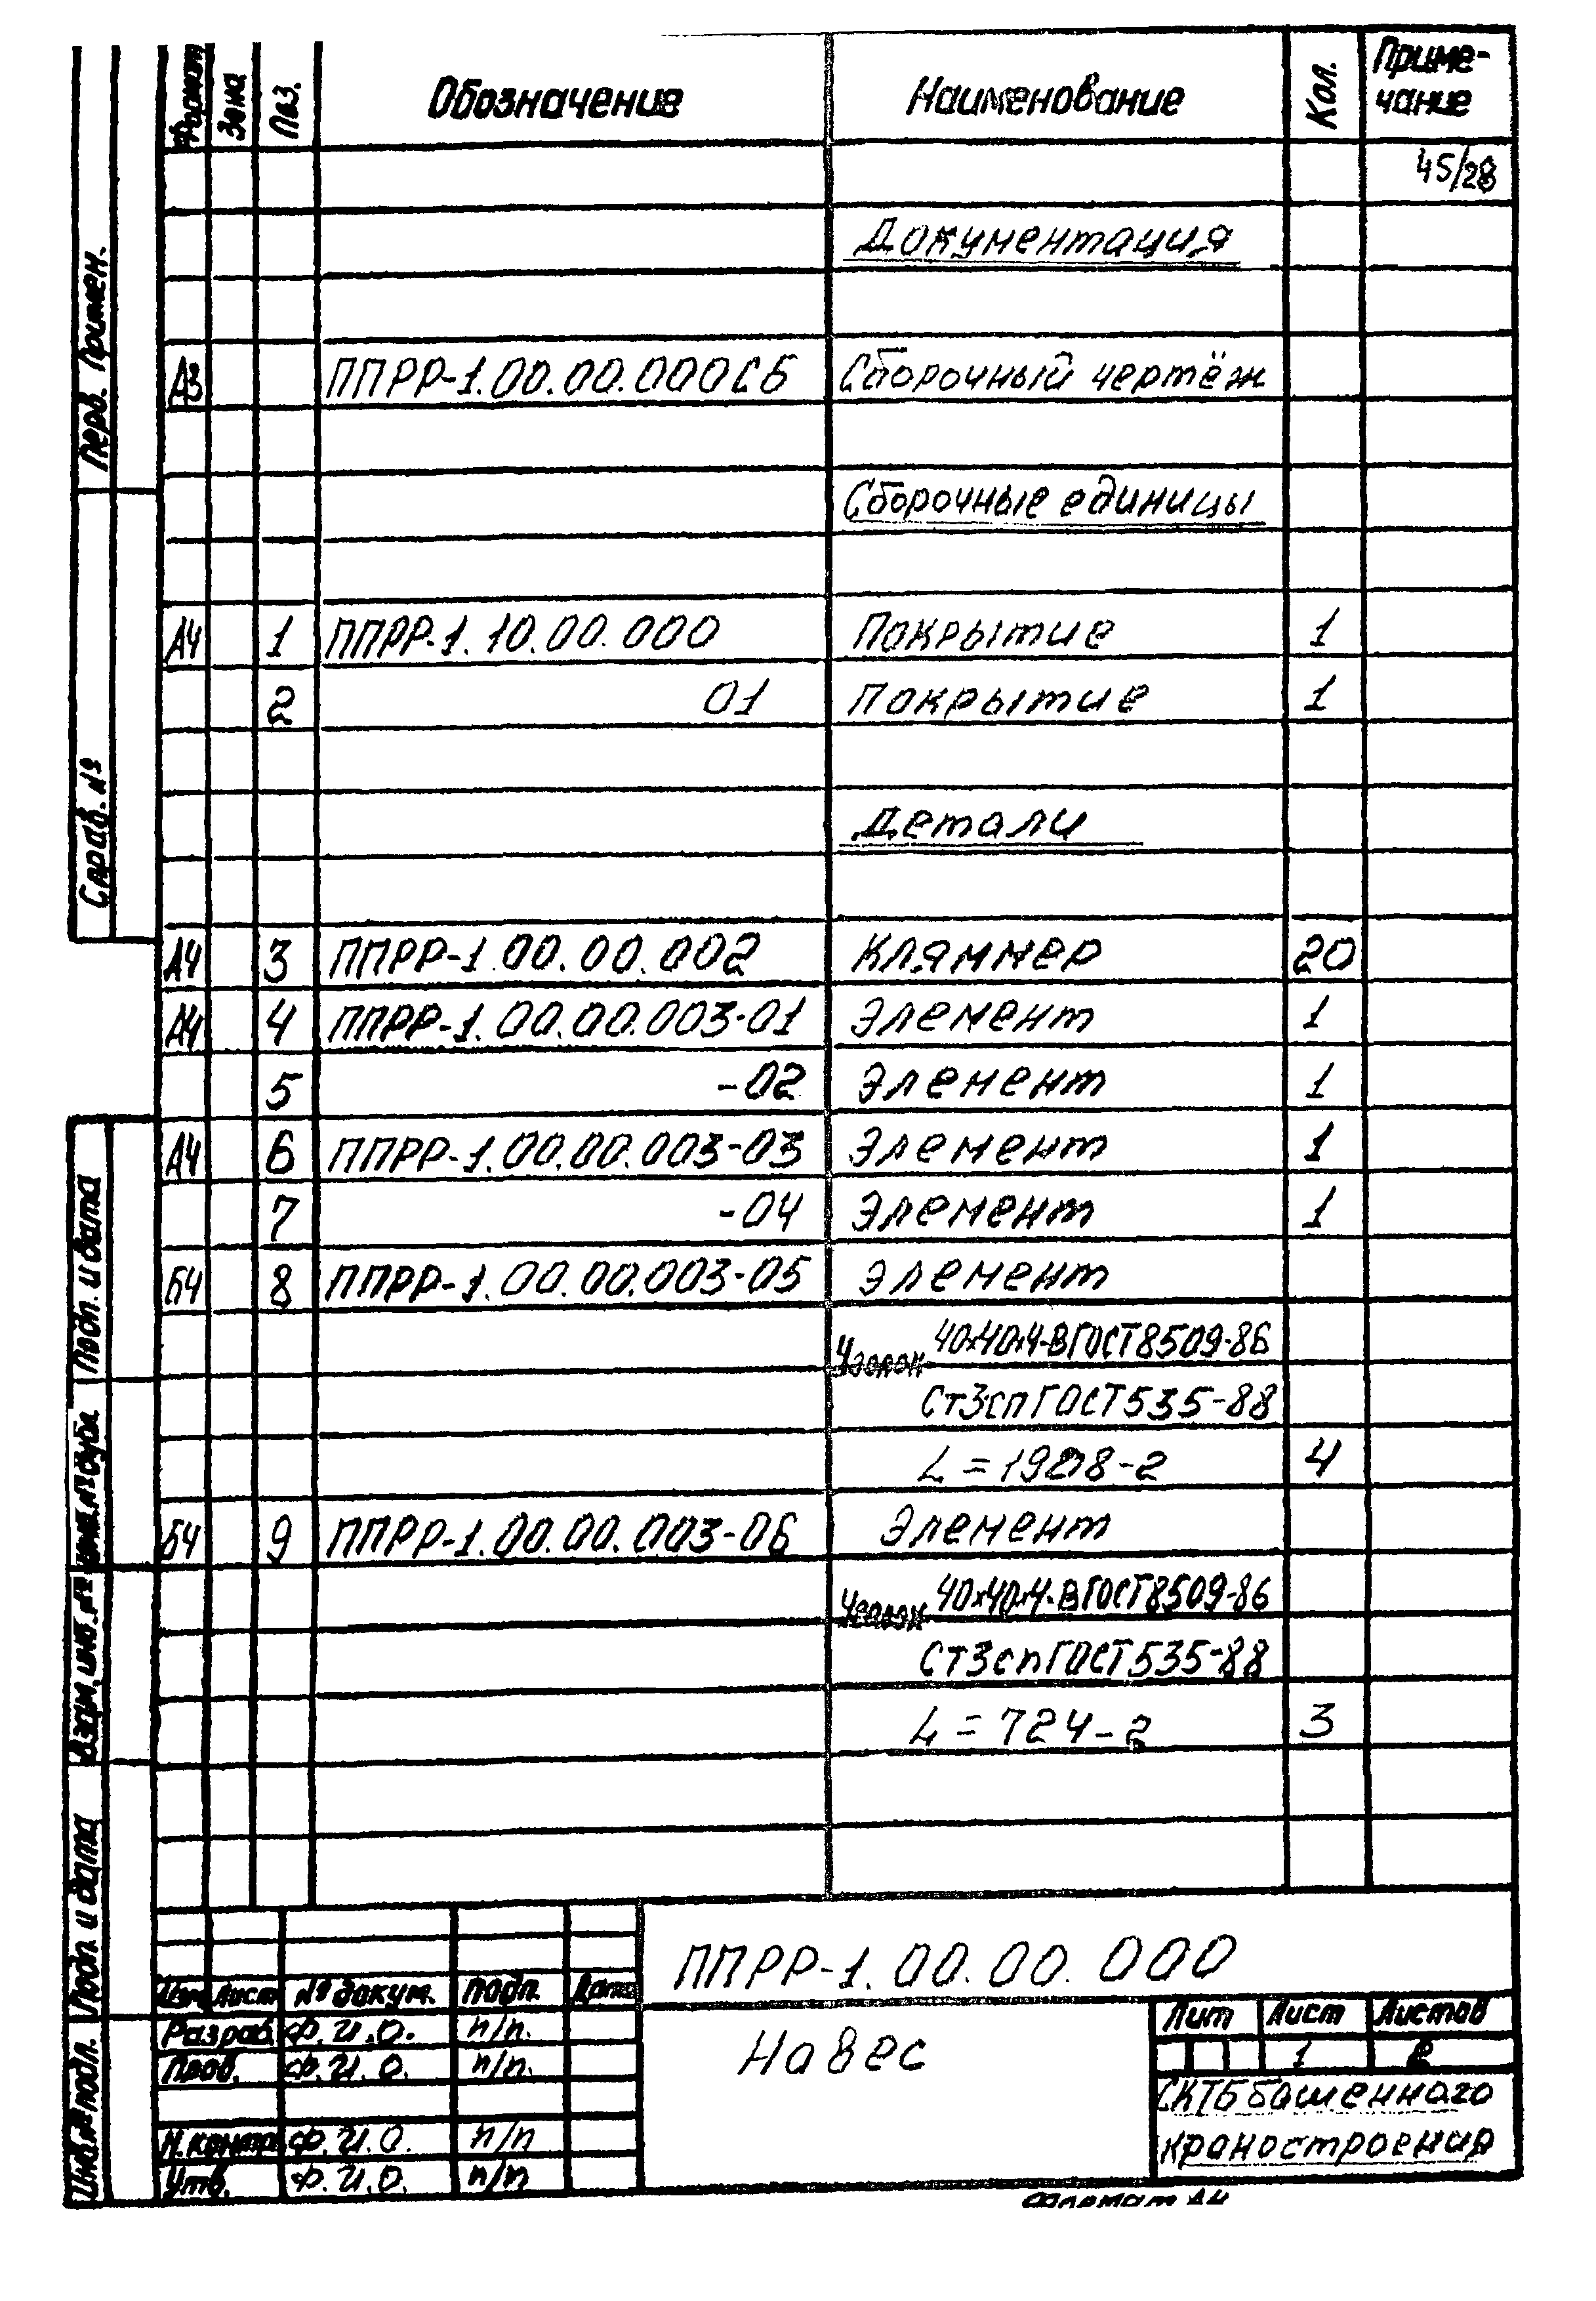 Формат Зона Поз. Обозначение Наименование Кол. Приме-
чание
45/28
Документация
А3 ППРР-1.00.00.000СБ Сборочный чертёж
Сборочные единицы
А4 1 ППРР-1.10.00.000 Покрытие 1
2 01 Покрытие 1
Детали
А4 3 ППРР-1.00.00.002 Кляммер 20
А4 4 ППРР-1.00.00.003-01 Элемент 1
5 -02 Элемент 1
А4 6 ППРР-1.00.00.003-03 Элемент 1
7 -04 Элемент 1
БЧ 8 ППРР-1.00.00.003-05 Элемент
Уголок 40х40х4-В ГОСТ 8509-86
Ст3сп ГОСТ 535-88
L = -2 4
БЧ 9 ППРР-1.00.00.003-06 Элемент
Уголок 40х40х4-В ГОСТ 8509-86
Ст3сп ГОСТ 535-88
L = 724-2 3
Перв. Примен.
Справ. №
Подп. и дата
Инв. № дубл.
Взам. инв. №
Подп. и дата
Инв. № подл.
ППРР-1.00.00.000
Изм Лист № докум. Подп. Дата
Разраб. Ф.И.О. п/п.
Пров. Ф.И.О. п/п.
Н.контр. Ф.И.О. п/п
Утв. Ф.И.О. п/п
Навес
Лит Лист Листов
1 2
СКТБ башенного
краностроения
Формат А4